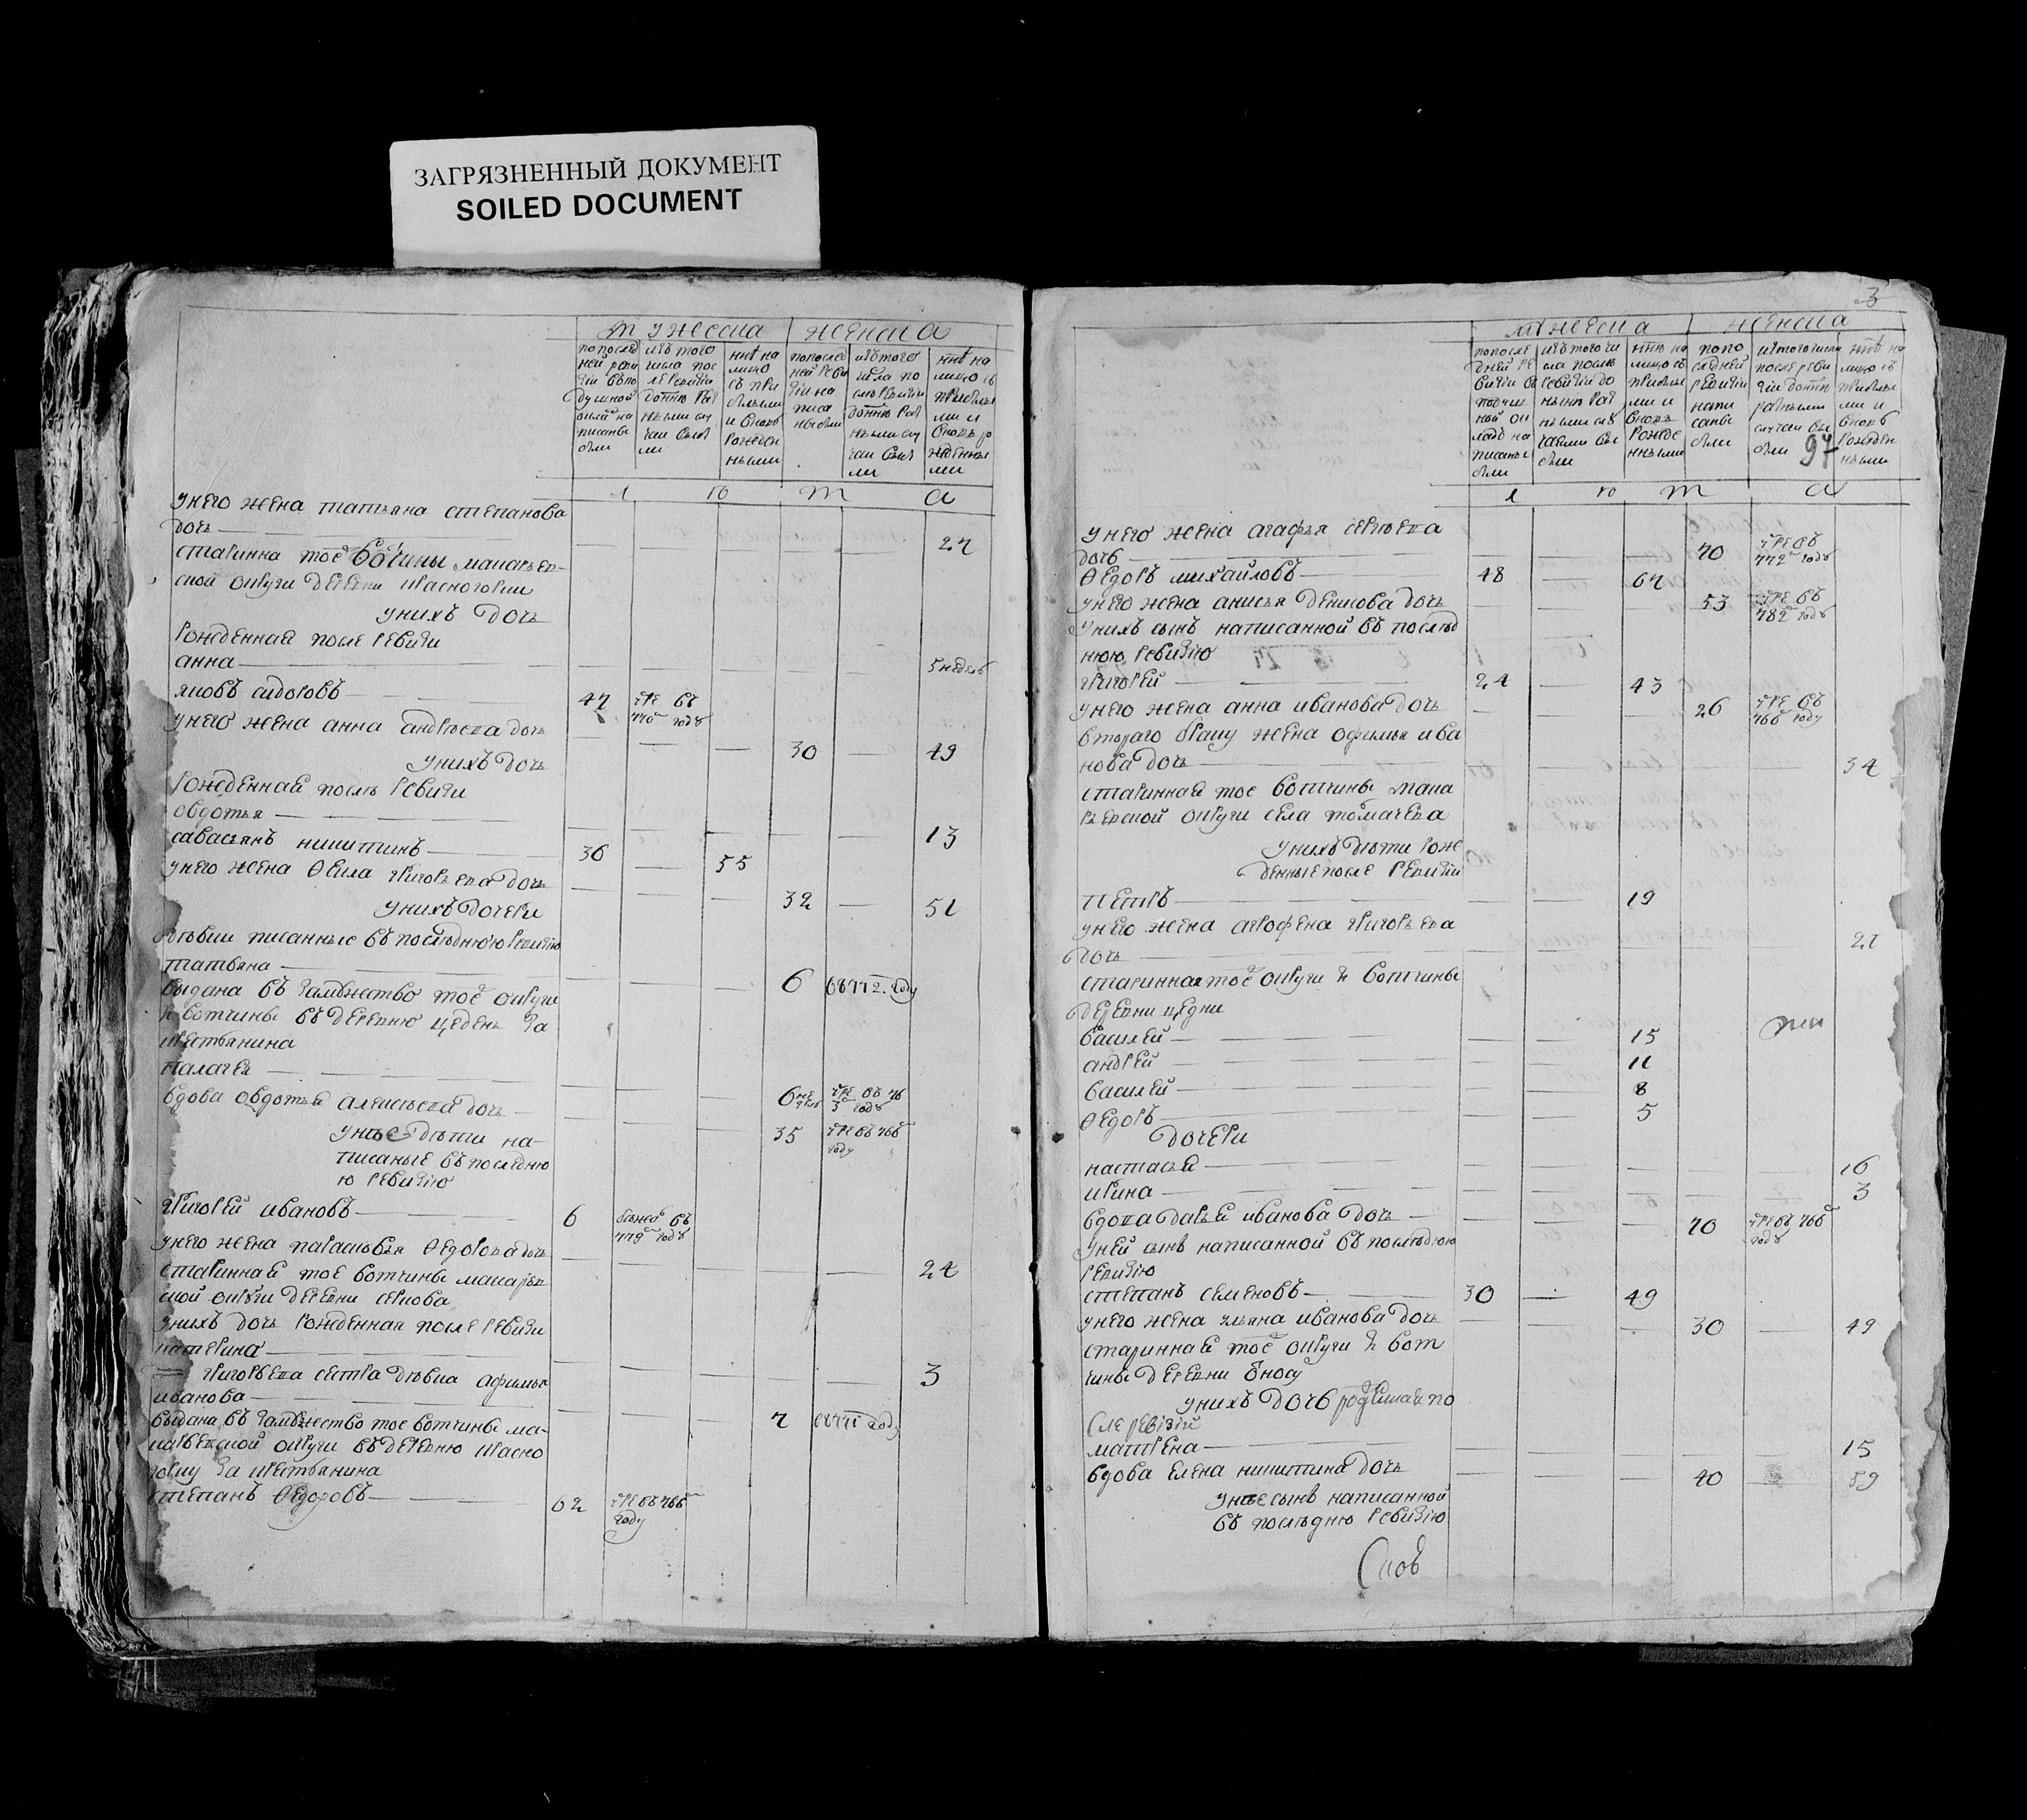 ЗАГРЯЗНЕННЫЙ ДОКУМЕНТ
SOILED DOCUMENT
мужеска женска
по послед
ней реви
зіи въ по
душной
окладъ на
писаны
были
изъ того
числа пос
ле ревизіи
до ннѣ раз
ными слу
чаи выбы
ли
ннѣ на
лицо
съ при
былыми
и вновь
рожден
ными
по послед
ней реви
зіи на
писа
ны были
изъ того
числа по
сле ревизіи
до ннѣ раз
ными слу
чаи выбы
ли
ннѣ на
лицо съ
прибылы
ми и
вновь ро
жденны
ми
л ѣ т а
у него жена татьяна степанова
дочь 27
старинна тоѣ вотчины макарьев-
ской округи деревни красногорки
у нихъ дочь
рожденная после ревизи
анна 5 недель
яковъ сидоровъ 47 умре въ 776 годѣ
у него жена анна андреева дочь 30 49
у нихъ дочь
рожденная послѣ ревизи
овдотья 13
савастьянъ никитинъ 36 55
у него жена ѳекла григорьева дочь 32 51
у нихъ дочери
девки писанные въ последнюю ревизию
татьяна 6 въ 772 году
выдана въ замужество тоѣ округи
и вотчины въ деревню цедень за
крестьянина
палагея 6 недель умре въ 763 годѣ
вдова овдотья алексеева дочь 35 умре въ 766 году
у нее дети на-
писаные въ последню
ю ревизию
григорей ивановъ 6 бежал въ 779 годѣ
у него жена парасковья ѳедорова дочь 24
стариннаѣ тоѣ вотчины макарьев
ской округи деревни
у нихъ дочь рожденная после ревизи
катерина 3
григорьева сестра девка афимья
иванова 7 въ 771 году
выдана въ замужество тоѣ вотчины ма-
карьевской округи въ деревню красно
горку за крестьянина
степанъ ѳедоровъ 62 умре въ 766 году
3
мужеска женска
по после
дней ре
визіи въ
подуш
ной ок
ладъ на
писаны
были
изъ того чи
сла после
ревизіи до
ннѣ раз
ными слу
чаями вы
были
ннѣ на
лицо съ
прибылы
ми и
вновь
рожде
нными
по по
следней
ревизіи
напи
саны
были
изъ того числа
после реви
зіи до ннѣ
разными
случаи вы
были
ннѣ на
лицо съ
прибылы
ми и
вновь
рожден
ными
97
л ѣ т а
у него жена агафья сергеева
дочь 70 умре въ 772 годѣ
ѳедоръ михайловъ 48 67
у него жена анисья денисова дочь 53 умре въ 782 годѣ
у нихъ сынъ написанной въ послед
нюю ревизию
григорей 24 43
у него жена анна иванова дочь 26 умре въ 766 году
втораго браку жена офимья ива
нова дочь 34
стариннаѣ тоѣ вотчины мака
рьевской округи села толмачева
у нихъ дети рож
денные после ревизии
петръ 19
у него жена агрофена григорьева
дочь 21
старинная тоѣ округи и вотчины
деревни цедни
василей 15
андрей 11
василей 8
ѳедоръ 5
дочери
настасья 16
ирина 3
вдова дарья иванова дочь 70 умре въ 766 годѣ
у ней сынъ написанной въ последнюю
ревизию
степанъ семеновъ 30 49
у него жена ульяна иванова дочь 30 49
стариннаѣ тоѣ округи и вот
чины деревни
у нихъ дочь родившая по
сле ревізіи
матрена 15
вдова елена никитина дочь 40 59
у нее сынъ написанной
въ последню ревизию